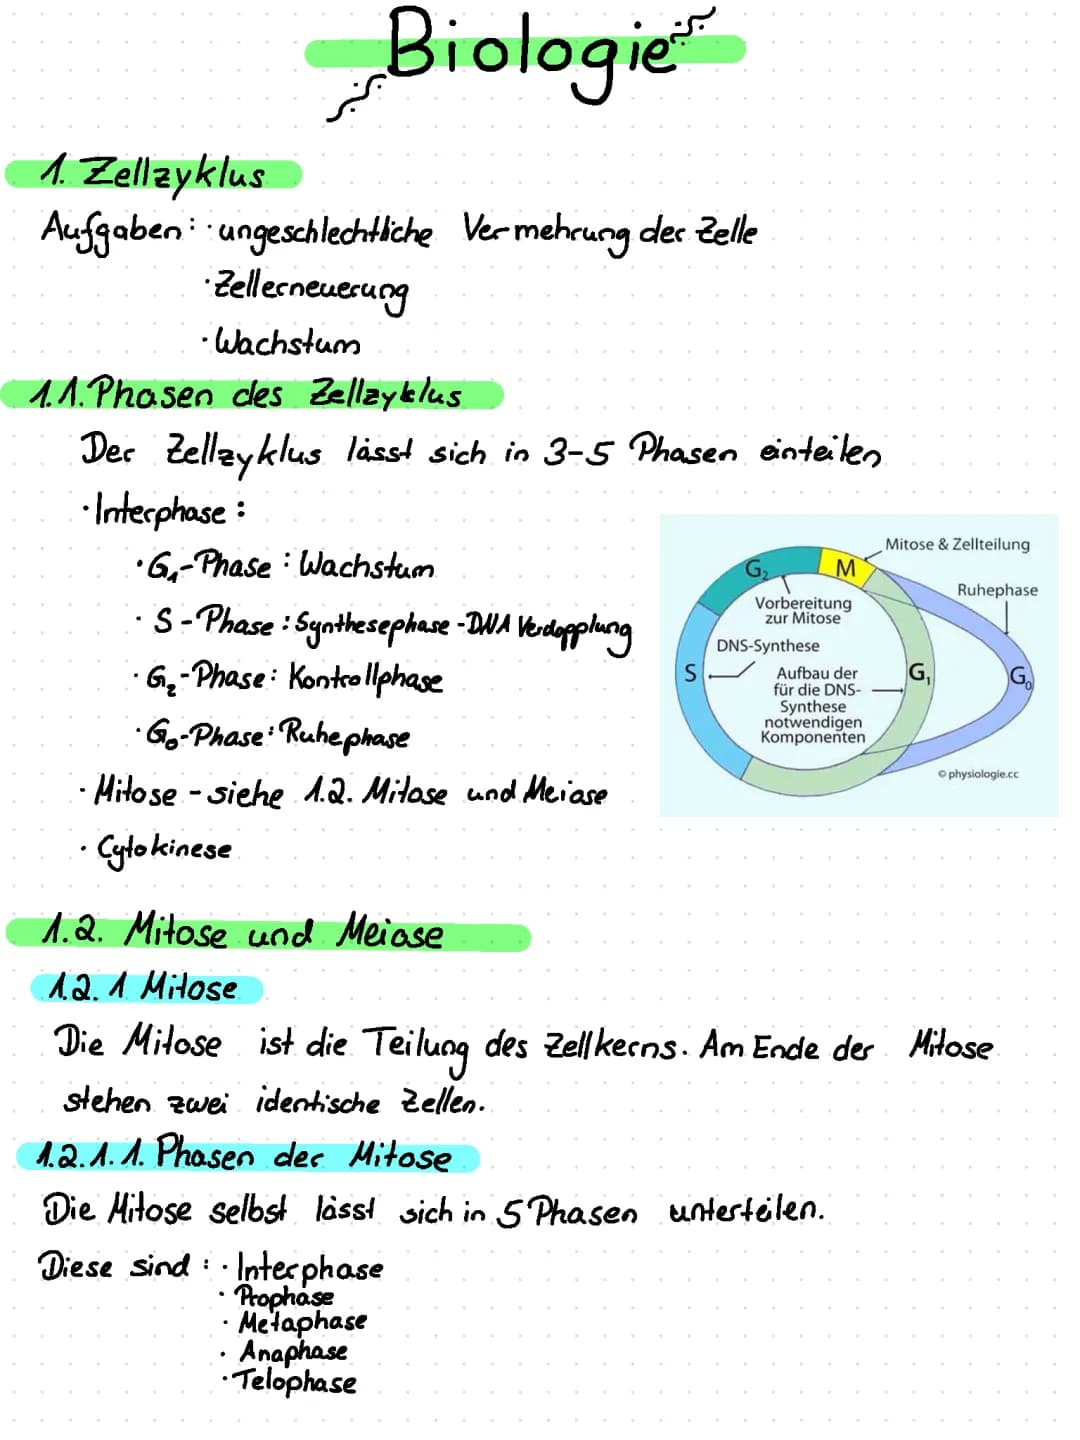 Biologie
1. Zellzyklus
Aufgaben: · ungeschlechtliche Vermehrung der Zelle
· Zellerneuerung
· Wachstum
1.1. Phasen des Zellzyklus
Der Zellzyklus lässt sich in 3-5 Phasen einteilen
· Interphase:
· G₁-Phase: Wachstum
· S-Phase: Synthesephase - DNA Verdopplung
· G₂-Phase: Kontrollphase
· G₀-Phase: Ruhephase
· Mitose - siehe 1.2. Mitose und Meiose
· Cytokinese
Mitose & Zellteilung
G₂
M
Ruhephase
Vorbereitung
zur Mitose
DNS-Synthese
S
Aufbau der
für die DNS-
Synthese
notwendigen
Komponenten
G₁
G₀
© physiologie.cc
1.2. Mitose und Meiose
1.2.1 Mitose
Die Mitose ist die Teilung des Zellkerns. Am Ende der Mitose
stehen zwei identische Zellen.
1.2.1.1. Phasen der Mitose
Die Mitose selbst lässt sich in 5 Phasen unterteilen.
Diese sind: · Interphase
· Prophase
· Metaphase
· Anaphase
· Telophase